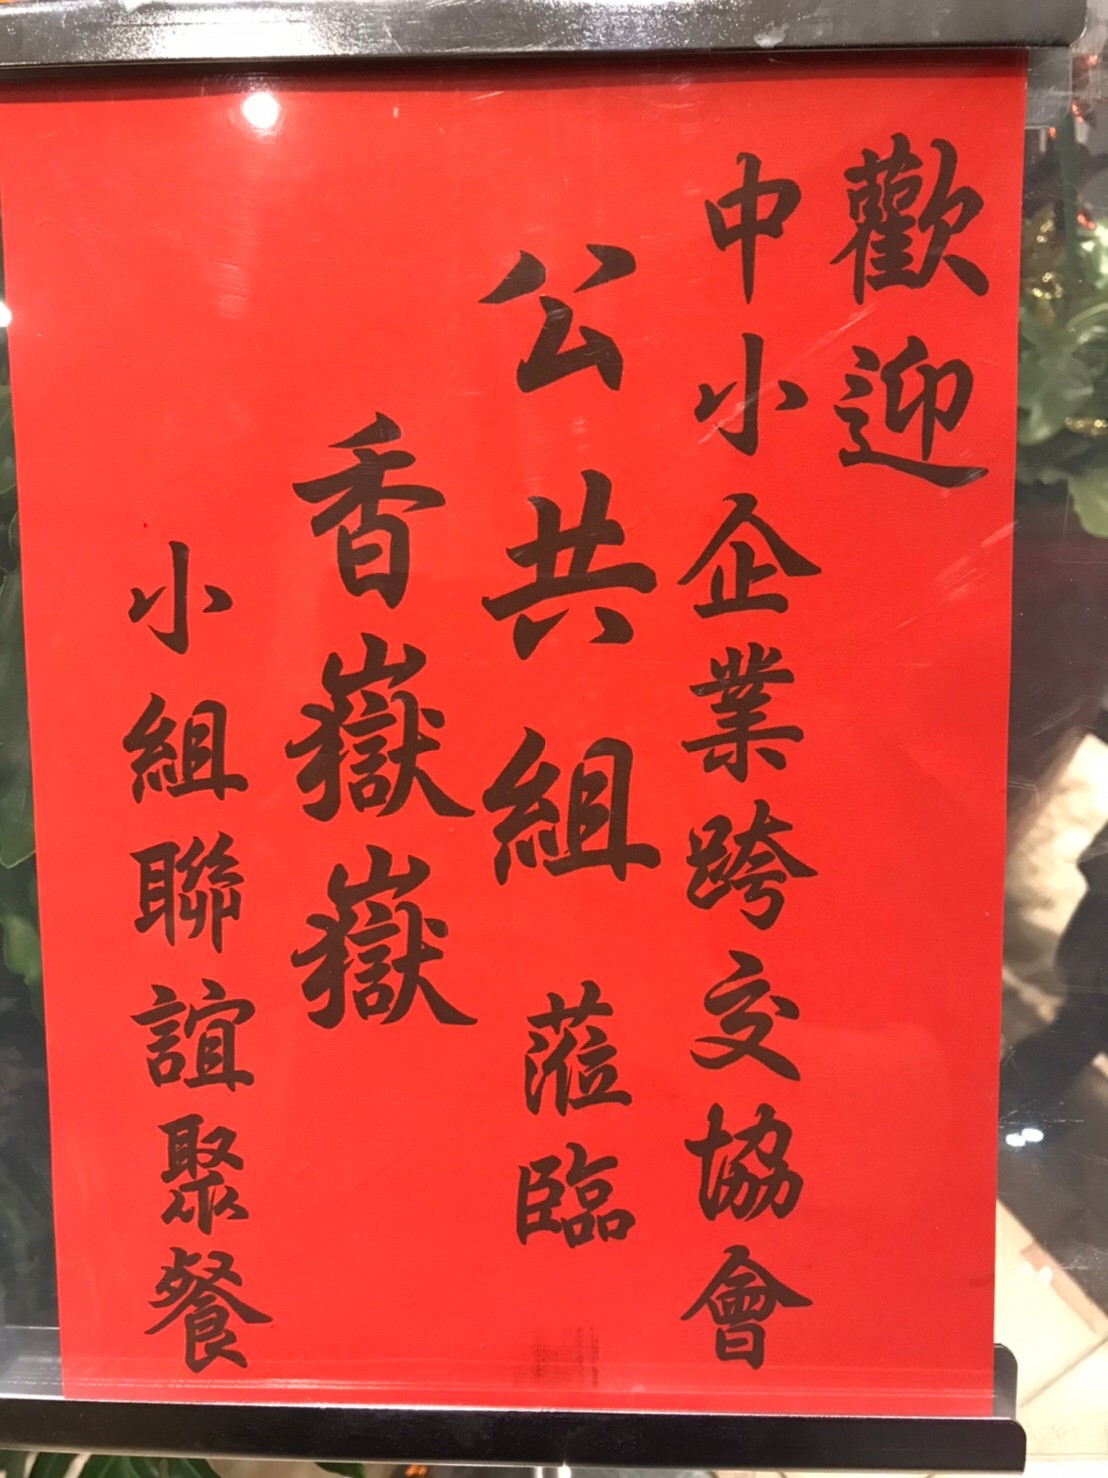 歡迎
中小企業跨交協會
公共組 蒞臨
香嶽嶽
小組聯誼聚餐